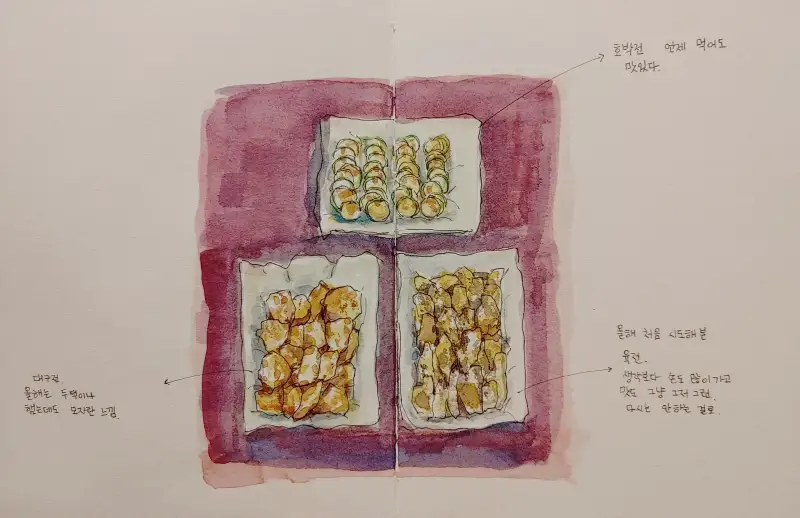 호박전 언제 먹어도
맛있다.
올해 처음 시도해본
육전.
생각보다 손도 많이가고
맛도 그냥 그저 그런.
다시는 안하는 걸로.
대구전
올해는 두팩이나
했는데도 모자란 느낌.